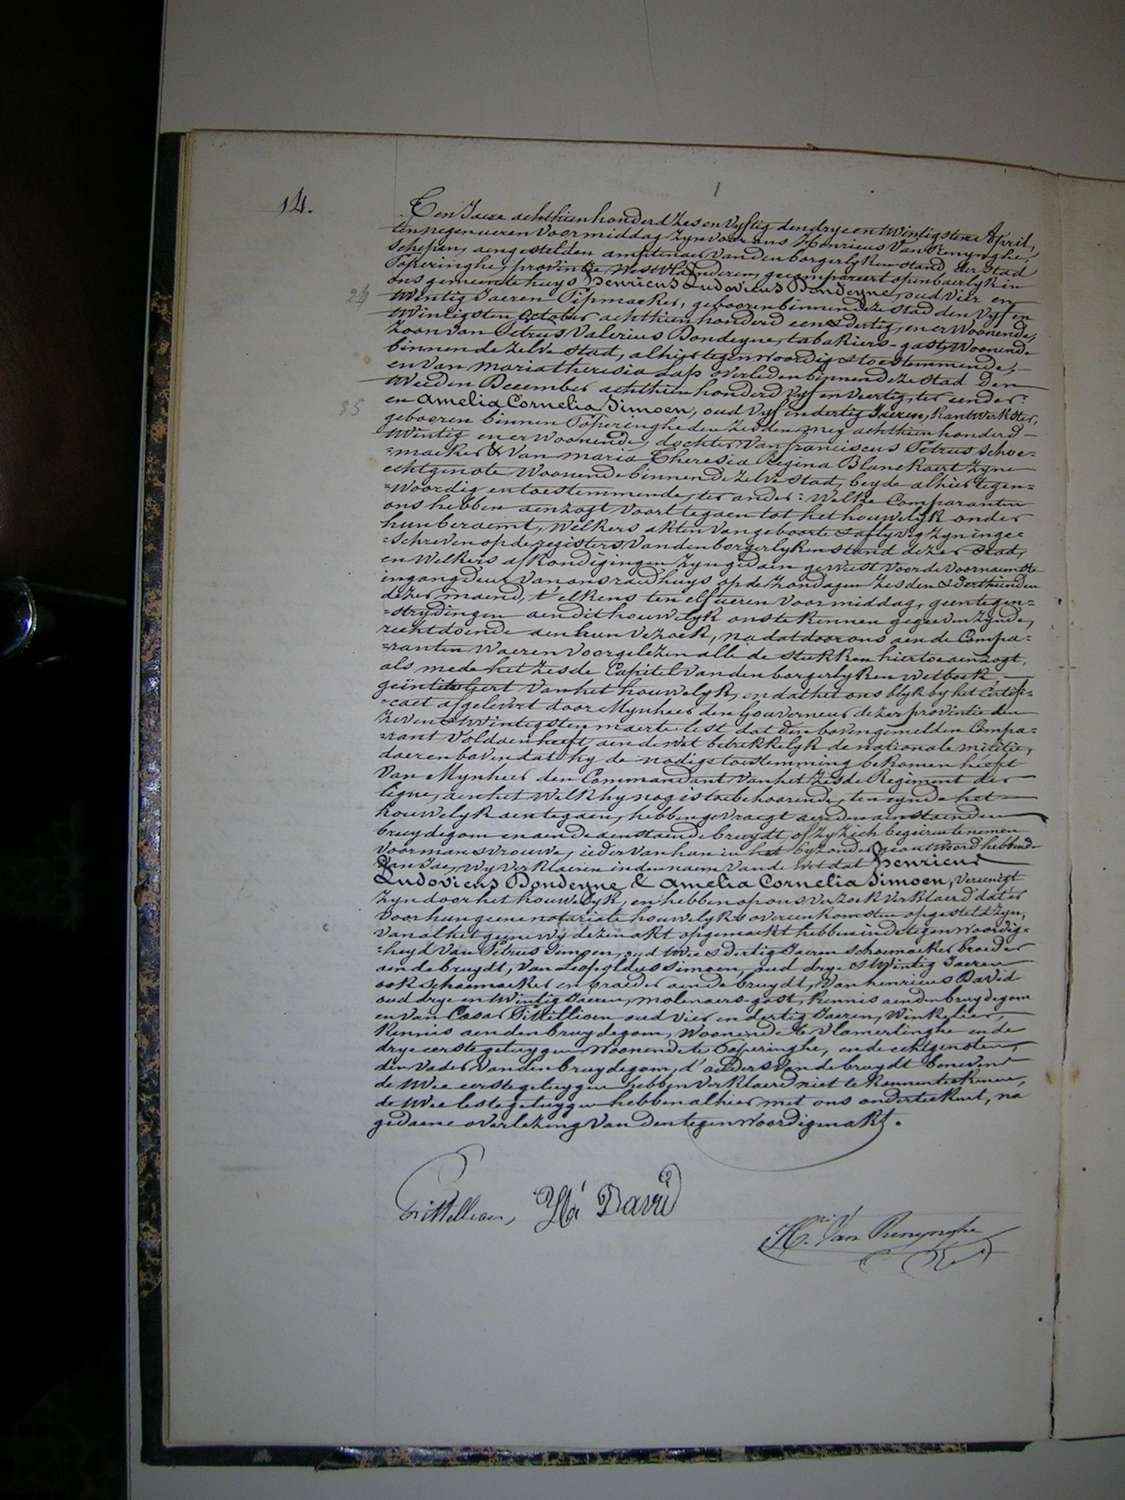 14.
1
Ten Jaere achthienhonderd zes en vyftig den drye en twintigsten April,
ten negen ueren voormiddag zyn voor ons Henricus Van Renynghe,
schepen, aengestelden amptenaer van den borgerlyken stand der Stad
Poperinghe, provincie West Vlaenderen, gecompareert openbaerlyk in
ons gemeentehuys Henricus Ludovicus Dondeyne, oud vier en
24
twintig Jaeren, Pypmaeker, gebooren binnen deze stad den vyf en
twintigsten october achthien honderd een & dertig, en er woonende,
zoon van Petrus Valerius Dondeyne, tabakiers-gast, woonende
binnen de zelve stad, alhier tegenwoordig & toestemmende,
en van maria theresia Lap overleden binnen deze stad den
tweeden December achthien honderd vyf en veertig, ter eender:
35
en Amelia Cornelia Simoen, oud vyf en dertig Jaeren, kantwerkster,
gebooren binnen Poperinghe den zesden mey achthien honderd
twintig en er woonende, dochter van franciscus Petrus schoe=
=maeker & van maria Theresia Regina Blanckaert zyne
echtgenote woonende binnen de zelve stad, beyde alhier tegen=
=woordig en toestemmende, ter ander: Welke Comparanten
ons hebben aenzogt voort te gaen tot het houwelyk onder
hun beraemt, welkers akten van geboorte & aflyvig zyn inge=
=schreven op de registers van den borgerlyken stand dezer stad,
en welkers afkondigingen zyn gedaen geweest voor de voornaemste
ingangdeur van ons raedhuys op de zondagen zesden & derthienden
dezer maend, t'elkens ten elf ueren voormiddag, geen tegen=
=strydingen aen dit houwelyk ons te kennen gegeven zynde,
recht doende aen hun verzoek, na dat door ons aen de Compa=
=ranten waeren voorgelezen alle de stukken hiertoe aenzogt,
als mede het zesde Capitel van den borgerlyken wetboek,
geïntituleert van het houwelyk, en dat het ons blyk by het Certifi=
=caet afgelevert door Mynheer den Gouverneur dezer provintie den
zeven & twintigsten maerte lest dat den bovengemelden Compa=
=rant voldaen heeft aen de wet betrekkelyk de nationale militie,
daerenboven dat hy de nodige toestemming bekomen heeft
van Mynheer den Commandant van het zesde Regiment der
ligne, aen het welk hy nog is toebehoorende, ten eynde het
houwelyk aen te gaen, hebben gevraegt aen den aenstaenden
bruydegom en aen de aenstaende bruydt, of zy zich begeiren te nemen
voor man & vrouwe, ieder van hun in het byzonder geantwoord hebbende
van Jae, wy verklaeren in den naem van de wet dat Henricus
Ludovicus Dondeyne & Amelia Cornelia Simoen, vereenigt
zyn door het houwelyk, en hebben op ons verzoek verklaerd dat er
voor hun geene notariale houwelyks overeenkomsten opgesteld zyn,
van al het geene wy dezen akt opgemaekt hebben in de tegenwoordig=
=heyd van Petrus Simoen, oud twee & dertig Jaeren schoemaeker broeder
aen de bruydt, van Leopoldus Simoen, oud drye & twintig Jaeren
ook schoemaeker en broeder aen de bruydt, van henricus David
oud drye en twintig Jaeren, molenaers-gast, kennis aen den bruydegom
en van Cesar Pitillioen oud vier en dertig Jaeren, winkelier,
kennis aen den bruydegom, woonende te Vlamertinghe en de
drye eerste getuygen woonende te Poperinghe, en de echtgenoten,
den vader van den bruydegom, d'ouders van de bruydt benevens
de twee eerste getuygen hebben verklaerd niet te kennen teekenen,
de twee leste getuygen hebben alhier met ons onderteekent, na
gedaene overlezing van den tegenwoordigen akt.
Pitillioen, Hri David
Hri. Van Renynghe